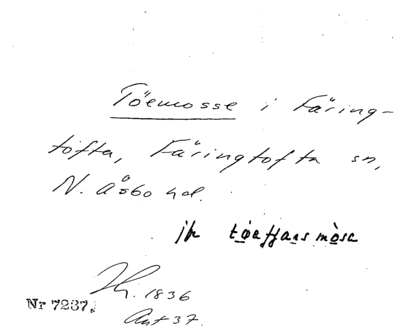 Töemosse i Färing-
tofta, Färingtofta sn,
N. Åsbo hd.
jfr töeffans möse
1836
Nr 7237. Ant 37.